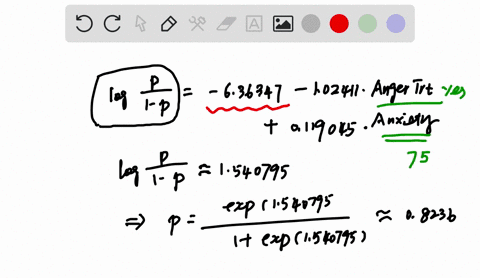 log p/1-p = -6.36347 - 1.02411 · AngerTrt yes
+ 0.119045 · Anxiety
75
log p/1-p ≈ 1.540795
⇒ p = exp(1.540795 / 1+ exp(1.540795) ≈ 0.8236